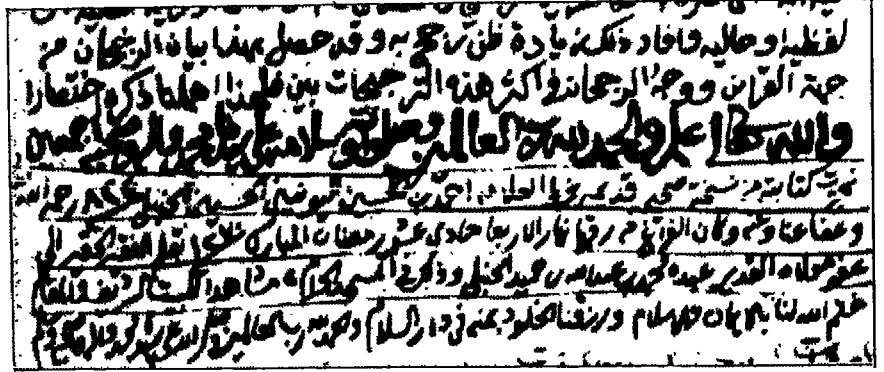 لفظية او حالية وافاد ذلك زيادة ظن رجح به وقد حصل بهذا بيان الرجحان من
جهة القرائن ووجه الرجحان في اكثر هذه الترجيحات بين فلهذا اهملنا ذكره اختصارا
والله تعالى اعلم والحمد لله رب العالمين وصلواته وسلامه على محمد واله وصحبه اجمعين
نجزت كتابته من نسخة صحيحة قديمة بخط العلامة احمد بن الحسيني الحنبلي رحمه الله
وعفا عنا وعنه وكان الفراغ من رقمها نهار الاربعا حادي عشر رمضان المبارك بقلم الفقير الحقير الى
عفو مولاه القدير عبده محمد بن عبد الله بن حميد الحنبلي وذلك في المسجد الحرام مشاهد البيت الشريف والمقام
ختم الله لنا بالايمان والاسلام ورزقنا الخلود بمنه في دار السلام والحمد لله رب العالمين